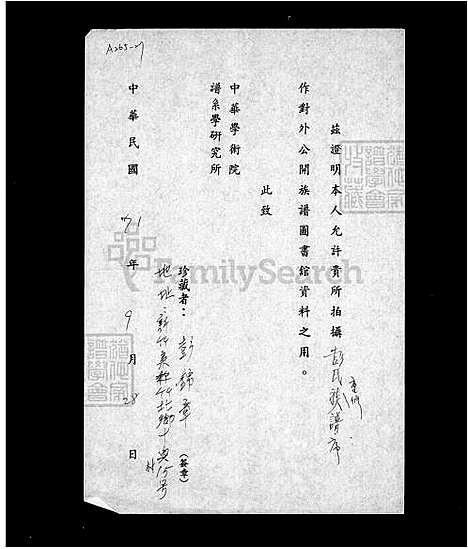 A265-27
茲證明本人允許貴所拍攝彭氏族譜序
作對外公開族譜圖書舘資料之用。
此致
中華學術院
譜系學研究所
珍藏者：彭錦章（簽章）
地址：新竹縣竹北鄉
15号
中華民國71年9月28日
FamilySearch